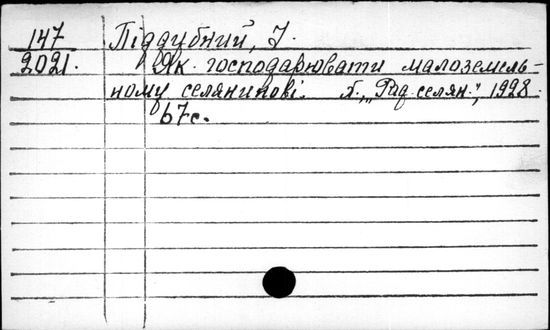 147 Піддубний, І.
2021. Як господарювати малоземель-
ному селянинові. Х., „Рад. селян.", 1928.
67с.